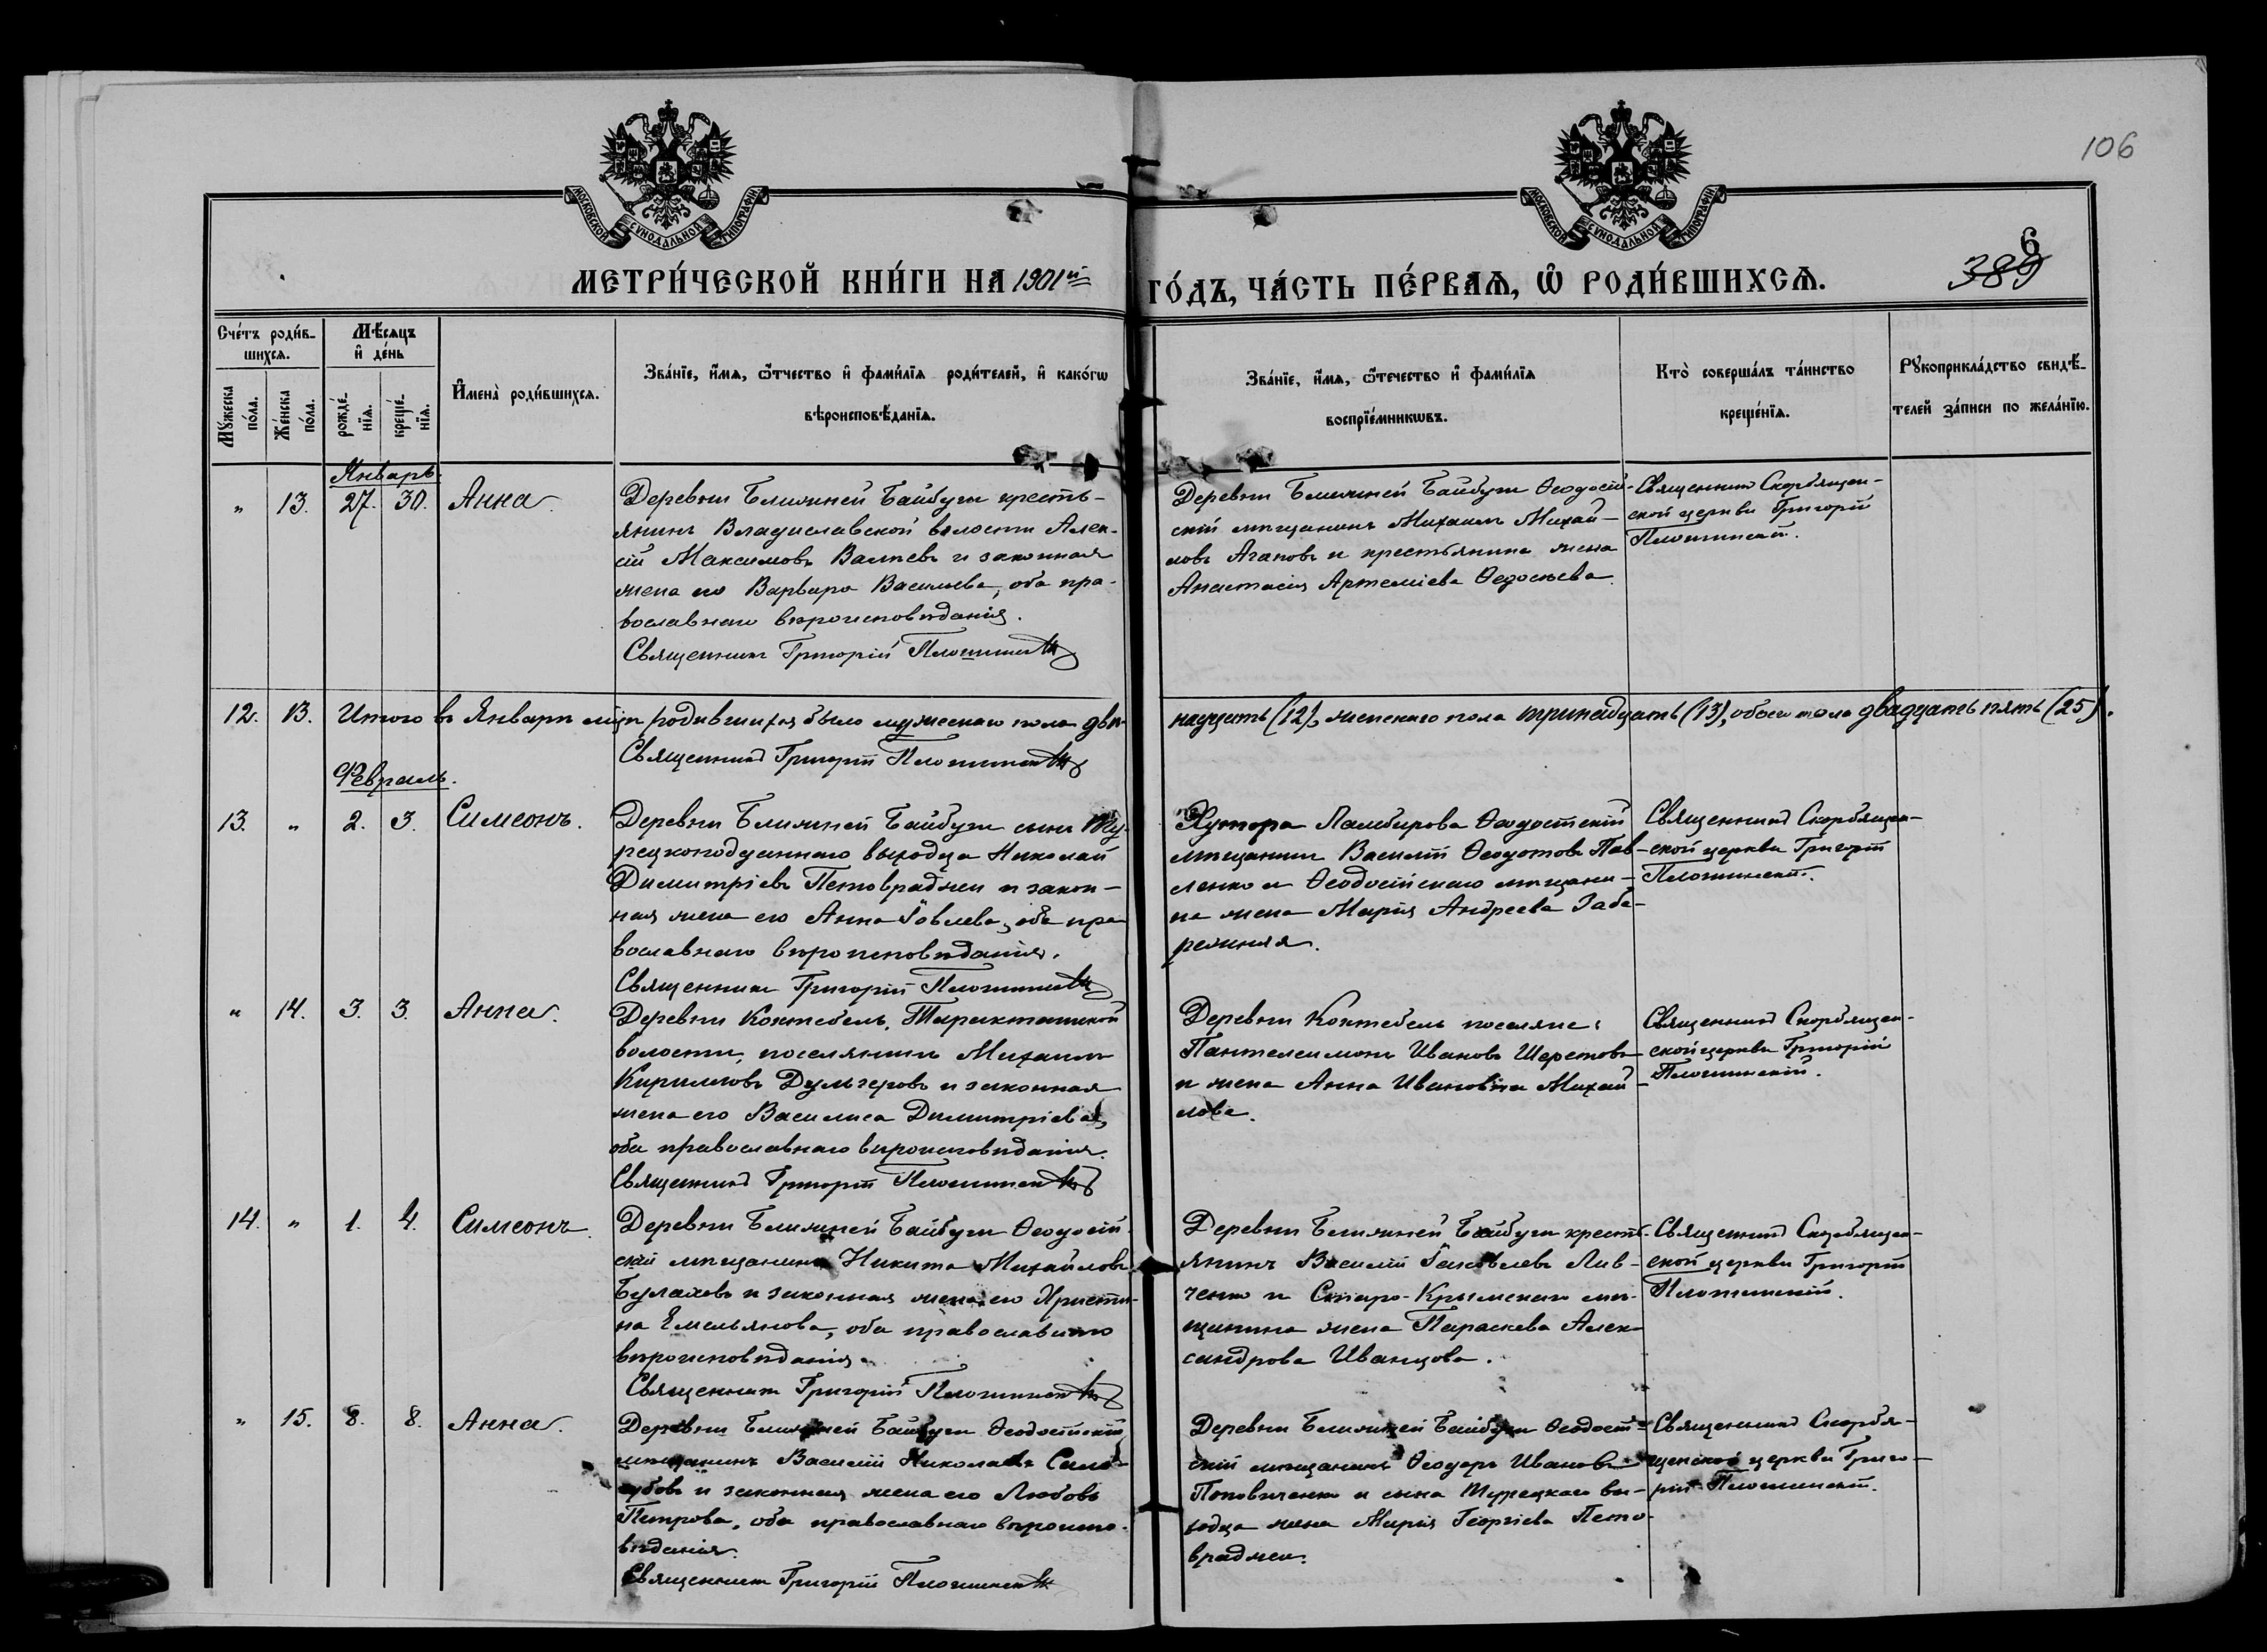 106
МОСКОВСКОЙ СѴНОДАЛЬНОЙ ТИПОГРАФІИ
МОСКОВСКОЙ СѴНОДАЛЬНОЙ ТИПОГРАФІИ
МЕТРИ́ЧЕСКОЙ КНИ́ГИ НА 1901й ГО́ДЪ, ЧА́СТЬ ПЕ́РВАѦ, Ѿ РОДИ́ВШИХСѦ.
6
389
Сче́тъ роди́в-
шихся.
Мѣ́сяцъ
и҆ де́нь
Мꙋ́жеска
по́ла.
Же́нска
по́ла.
рожде́-
нїя.
креще́-
нїя.
И҆мена̀ роди́вшихся.
Зва́нїе, и҆́мя, ѻ҆́тчество и҆ фами́лїя роди́телей, и҆ како́гѡ
вѣроисповѣ́данїя.
Зва́нїе, и҆́мя, ѻ҆́течество и҆ фами́лїя
воспрїе́мникѡвъ.
Кто̀ соверша́лъ та́инство
креще́нїя.
Рꙋкоприкла́дство свидѣ́-
телей за́писи по жела́нїю.
Январь.
" 13. 27. 30. Анна.
Деревни Ближней Байбуги кресть-
янинъ Владиславской волости Алек-
сій Максимовъ Валневъ и законная
жена его Варвара Васильева, оба пра-
вославнаго вѣроисповѣданія.
Священникъ Григорій Плошинскій
Деревни Ближней Байбуги Ѳеодосій-
скій мѣщанинъ Михаилъ Михай-
ловъ Агаповъ и крестьянина жена
Анастасія Артеміева Ѳедосѣева.
Священникъ Скорбящен-
ской церкви Григорій
Плошинскій.
12. 13. Итого въ Январѣ мцѣ родившихся было мужескаго пола двѣ-
надцать (12), женскаго пола тринадцать (13), обоего пола двадцать пять (25).
Священникъ Григорій Плошинскій
Февраль.
13. " 2. 3. Симеонъ.
Деревни Ближней Байбуги сынъ Ту-
рецкоподданнаго выходца Николай
Димитріевъ Петовраджи и закон-
ная жена его Анна Іовлева, оба пра
вославнаго вѣроисповѣданія.
Священникъ Григорій Плошинскій
Хутора Ламбирова Ѳеодосійскій
мѣщанинъ Василій Ѳеодотовъ Пав-
ленко и Ѳеодосійскаго мѣщани-
на жена Марія Андреева Габа-
режная.
Священникъ Скорбящен-
ской церкви Григорій
Плошинскій.
" 14. 3. 3. Анна.
Деревни Коктебель, Таракташской
волости, поселянинъ Михаилъ
Кириловъ Дульгеровъ и законная
жена его Василиса Димитріева,
оба православнаго вѣроисповѣданія.
Священникъ Григорій Плошинскій
Деревни Коктебель поселяне:
Пантелеимонъ Ивановъ Шеретовъ
и жена Анна Ивановна Михай-
лова.
Священникъ Скорбящен-
ской церкви Григорій
Плошинскій.
14. " 1. 4. Симеонъ.
Деревни Ближней Байбуги Ѳеодосій-
скій мѣщанинъ Никита Михайловъ
Булаховъ и законная жена его Христи-
на Емельянова, оба православнаго
вѣроисповѣданія.
Священникъ Григорій Плошинскій
Деревни Ближней Байбуги кресть-
янинъ Василій Іаковлевъ Лив-
ченко и Старо-Крымскаго мѣ-
щанина жена Параскева Алек-
сандрова Иванцова.
Священникъ Скорбящен-
ской церкви Григорій
Плошинскій.
" 15. 8. 8. Анна.
Деревни Ближней Байбуги Ѳеодосійскій
мѣщанинъ Василій Николаевъ
и законная жена его Любовь
Петрова, оба православнаго вѣроиспо-
вѣданія.
Священникъ Григорій Плошинскій
Деревни Ближней Байбуги Ѳеодосій-
скій мѣщанинъ Ѳеодоръ Ивановъ
Поповиченко и сына Турецкаго вы-
ходца жена Марія Георгіева Пето-
враджи.
Священникъ Скорбя-
щенской церкви Григо-
рій Плошинскій.